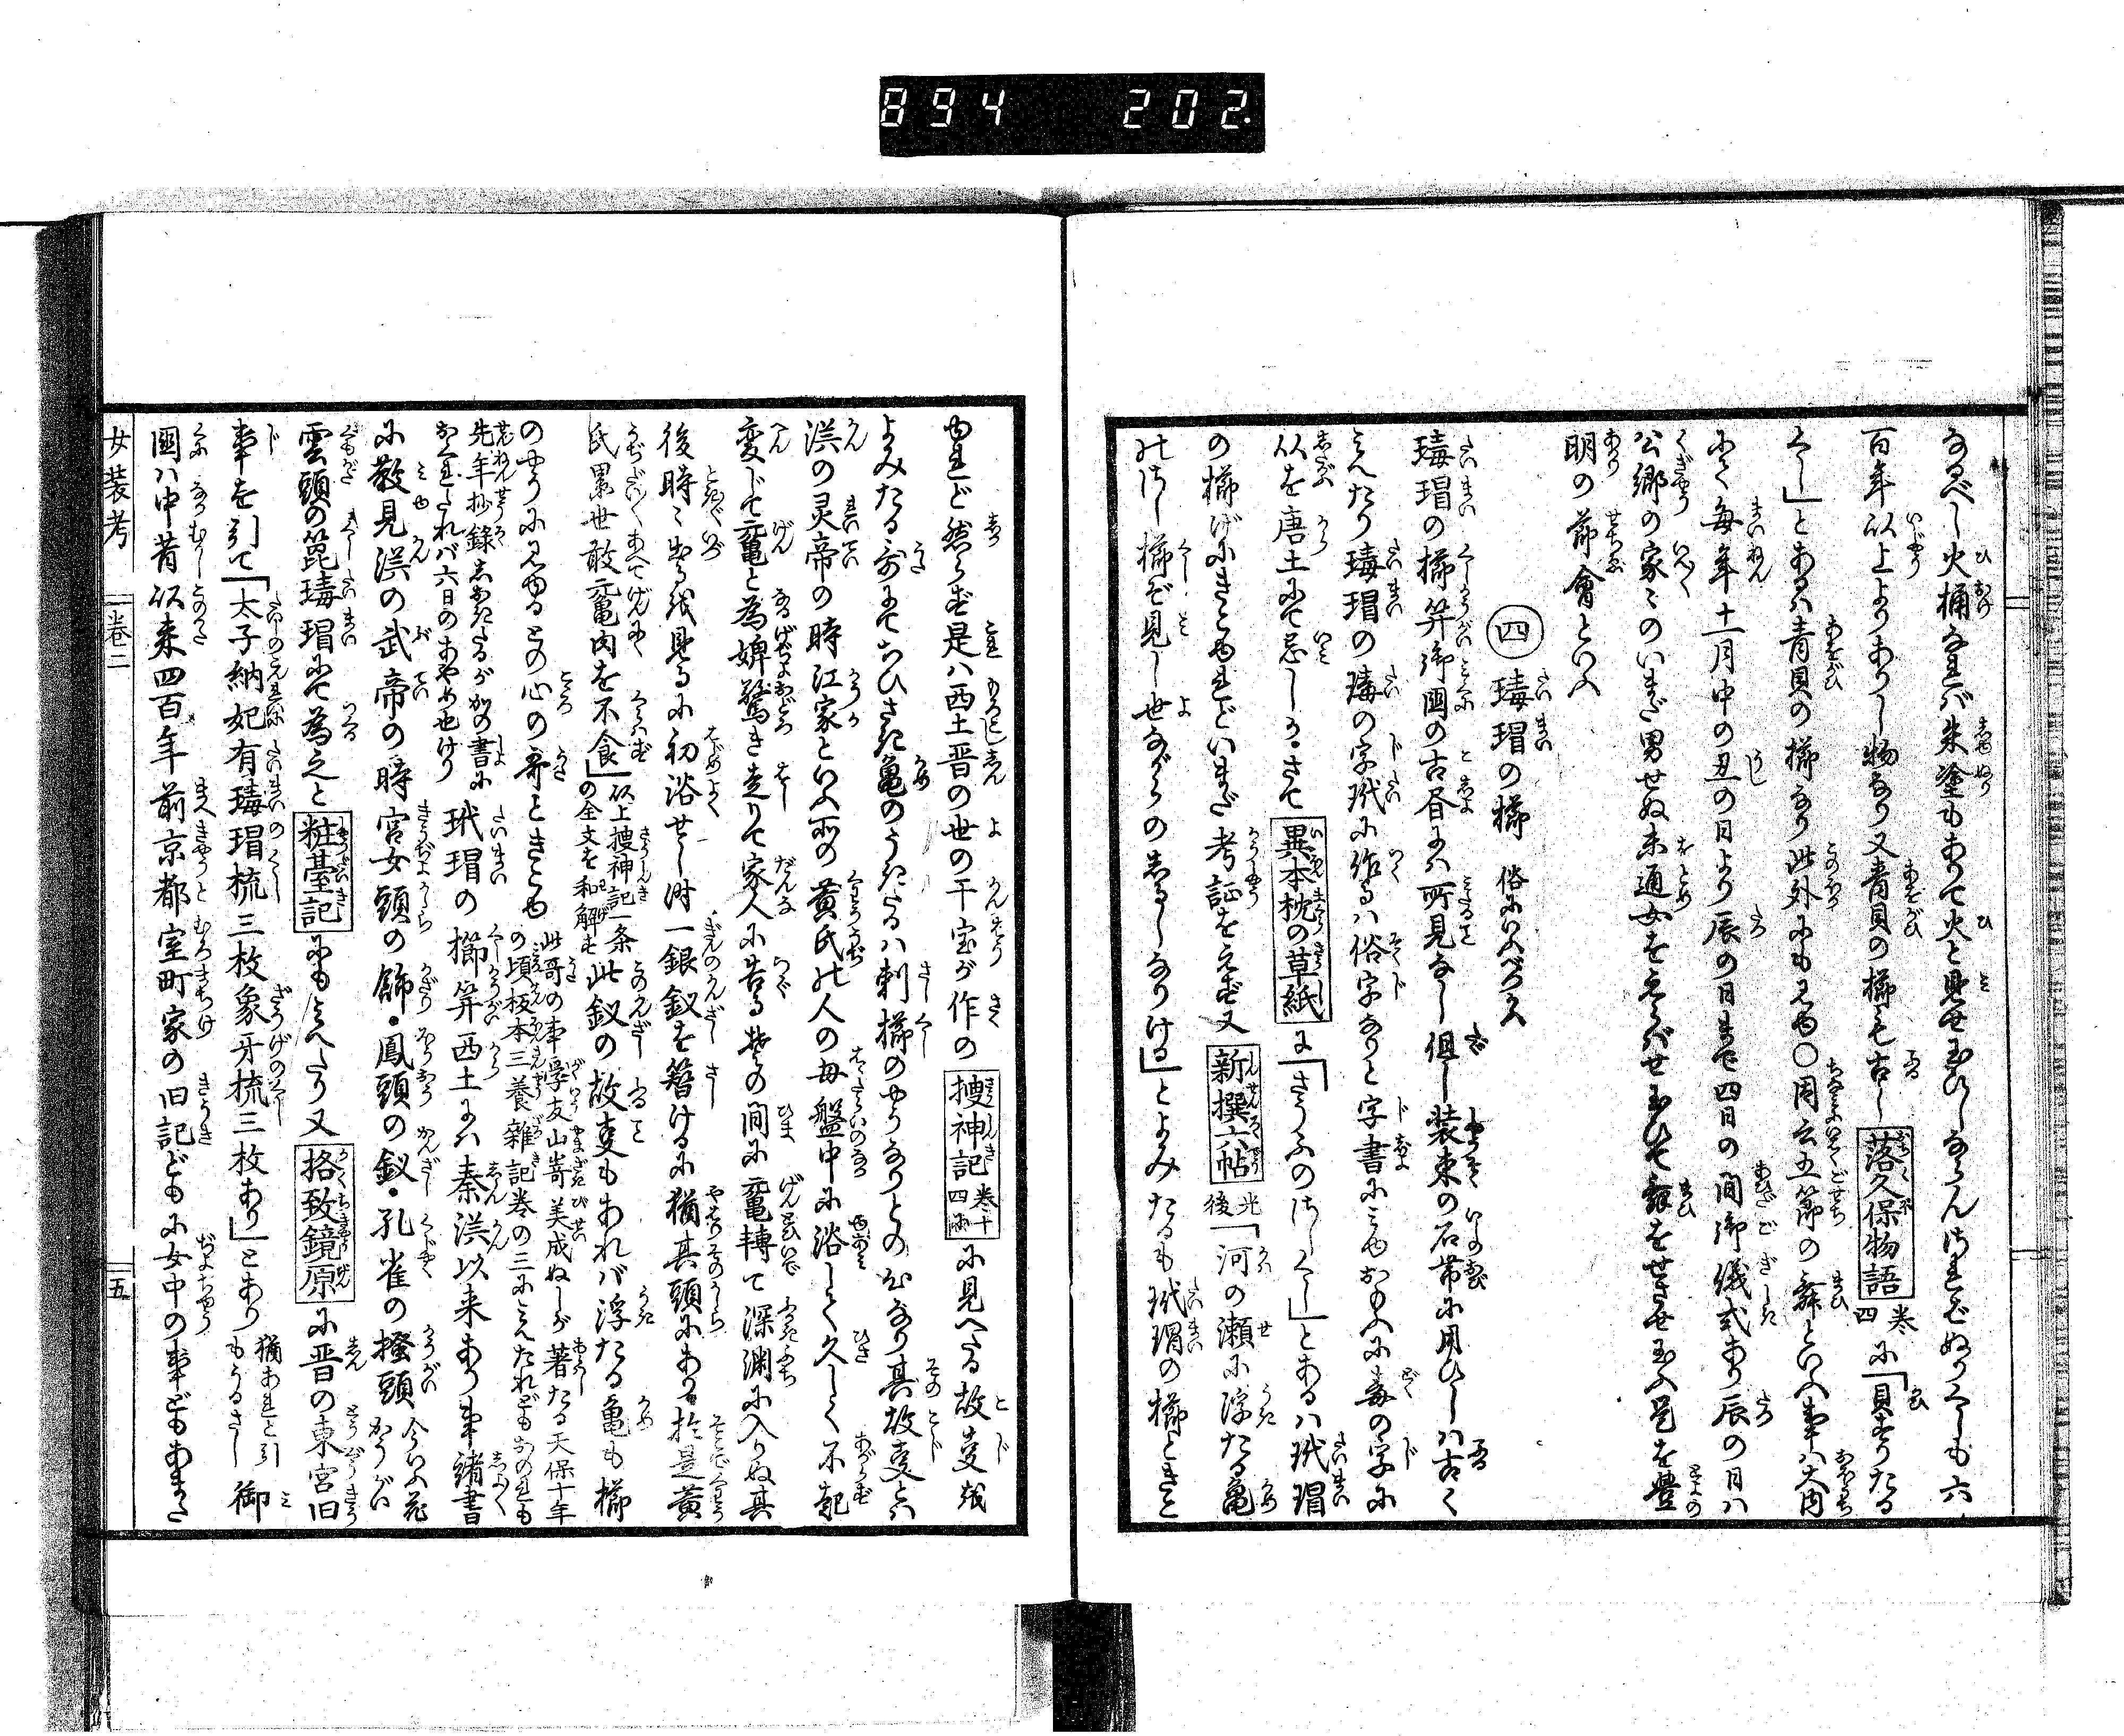 894 202.
なるべし火桶なれバ朱塗もありて火と見せ玉ひしならんされどぬりくしも六
百年以上よりありし物なり又青貝の櫛も古し落久保物語巻四に「貝すりたる
くし」とあるハ青貝の櫛なり此外にも見ゆ〇因云五節の舞といふ事ハ大内
にて毎年十一月中の丑の日より辰の日まで四日の間御儀式あり辰の日ハ
公卿の家々のいまだ男せぬ未通女をえらバせ玉ひて舞をせさせ玉ふ是を豊
明の節會といふ
四 瑇瑁の櫛 俗にいふべつかう
瑇瑁の櫛笄御國の古昔にハ所見なし但し装束の石帯に用ひしハ古く
みえたり瑇瑁の瑇の字玳に作るハ俗字なりと字書にみゆおもふに毒の字に
似を唐土にて忌しか.さて異本枕の草紙に「さうふのさしくし」とあるハ玳瑁
の櫛げにきこゆれどいまだ考証をえず又新撰六帖光後「河の瀬に浮たる亀
のさし櫛ぞ見し世ながらのしるしなりける」とよみたるも玳瑁の櫛ときこ
ゆれど然らず是ハ西土晋の世の干宝が作の捜神記巻十四に見へたる故事を
よみたる哥にてちひさき亀のうきたるハ刺櫛のやうなりとの心なり其故事とハ
漢の灵帝の時江家といふ所の黄氏の人の母盤中に浴して久しく不起
変じて黿と為婢驚き走りて家人に告る其の間に黿轉て深渊に入りぬ其
後時々出るを見るに初浴せし時一銀釵を簪けるに猶其頭にあり於是黄
氏累世敢黿肉を不食」以上捜神記一条の全文を和解す此釵の故事もあれバ浮たる亀も櫛
のやうに見ゆるとの心の哥ときこゆ此哥の事学友山嵜美成ぬしが著たる天保十年の頃板本三養雑記巻の三にみえたれどもおのれも
先年抄録しおきたるが如の書におくれしれバ六日のあやめ也けり玳瑁の櫛笄西土にハ秦漢以来あり事諸書
に散見漢の武帝の時宮女頭の飾.鳳頭の釵.孔雀の搔頭今いふ花かうがい
雲頭の篦瑇瑁にて為之と粧臺記にもみへたり又挌致鏡原に晋の東宮旧
事を引て「太子納妃有瑇瑁梳三枚象牙梳三枚あり」とあり猶あれど引もうるさし御
國ハ中昔以来四百年前京都室町家の旧記どもに女中の事どもあまた
女装考 巻二 五